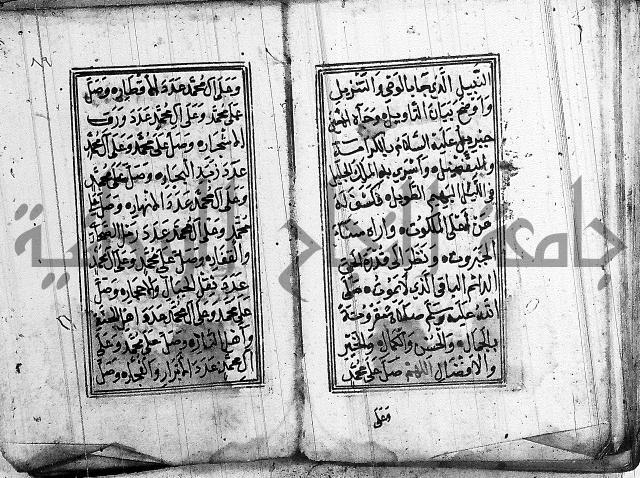 النبيل الذي جاء بالوحي والتنزيل
واوضح بيان التاويل وجاه الامين
جبريل عليه السلام بالكرامة
والتفضيل واسرى به الملك الجليل
في الليل البهيم الطويل فكشف له
عن اعلى الملكوت واراه سناء
الجبروت ونظر الى قدرة الحي
الدائم الباقي الذي لا يموت صلى
الله عليه وسلم صلاة مقرونة
بالجمال والحسن والكمال والخير
والافضال اللهم صل على محمد
وعلى
وعلى ال محمد عدد الاقطار وصل
على محمد وعلى ال محمد عدد ورق
الاشجار وصل على محمد وعلى ال محمد
عدد زبد البحار وصل على محمد
وعلى ال محمد عدد الانهار وصل على
محمد وعلى ال محمد عدد رمل الصحار
والقفار وصل على محمد وعلى ال محمد
عدد ثقل الجبال والاحجار وصل
على محمد وعلى ال محمد عدد اهل الجنة
واهل النار وصل على محمد وعلى
ال محمد عدد الابرار والفجار وصل
جامعة النجاح الوطنية